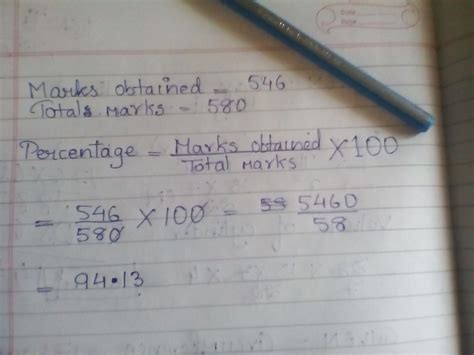 Marks obtained = 546
Totals marks = 580
Percentage = Marks obtained / Total marks × 100
= 546 / 580 × 100 = 5460 / 58
= 94.13